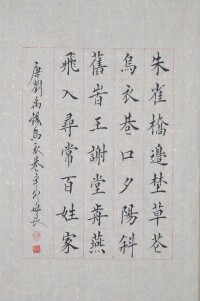 朱雀橋邊埜草花
烏衣巷口夕陽斜
舊峕王謝堂前燕
飛入尋常百姓家
唐劉禹錫烏衣巷辛卯